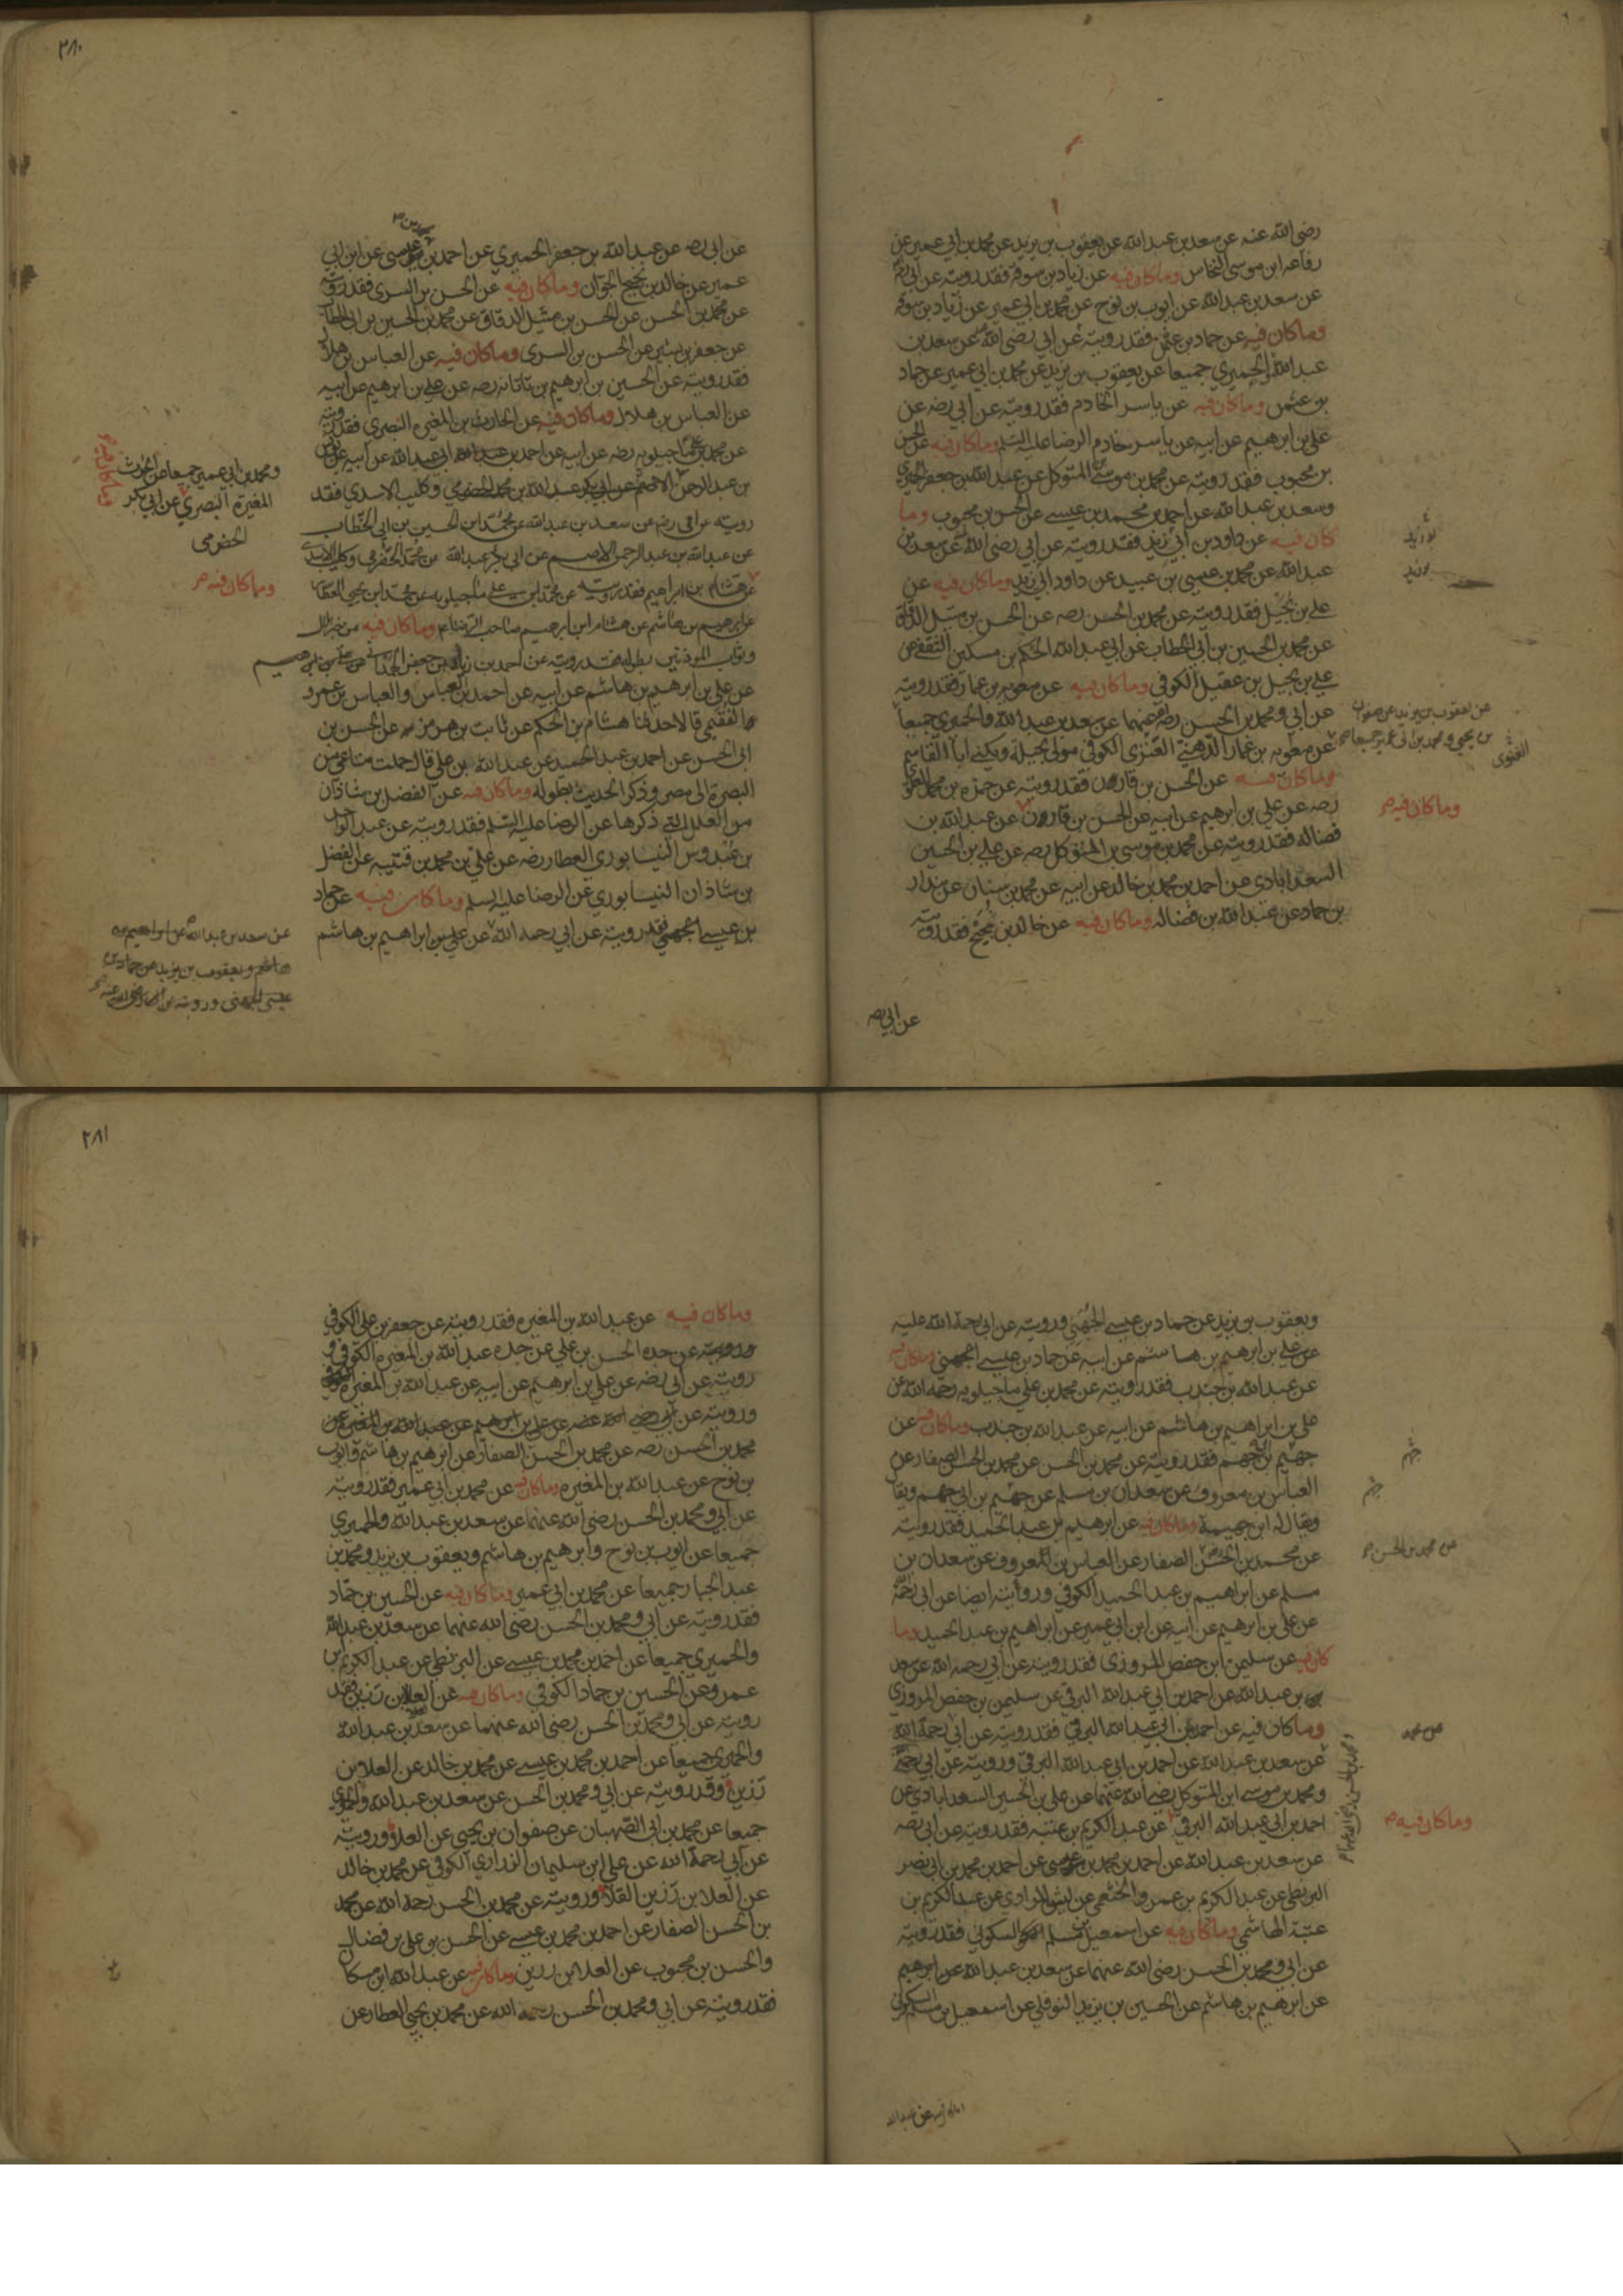 رضى الله عنه عن سعد بن عبد الله عن يعقوب بن يزيد عن محمد بن ابي عمير عن
رفاعه ابن موسى النخاس وما كان فيه عن زياد بن سوقة فقد رويته عن ابي رضه
عن سعد بن عبد الله عن ايوب بن نوح عن محمد بن ابي عمير عن زياد بن سوقه
وما كان فيه عن حماد بن عثمن فقد رويته عن ابي رضى الله عنه عن سعد بن
عبد الله والحميري جميعا عن يعقوب بن يزيد عن محمد بن ابي عمير عن حماد
بن عثمن وما كان فيه عن ياسر الخادم فقد رويته عن ابي رضه عن
علي بن ابرهيم عن ابيه عن ياسر خادم الرضا عليه السلم وما كان فيه عن الحسن
بن محبوب فقد رويته عن محمد بن موسى بن المتوكل عن عبد الله بن جعفر الحميري
وسعد بن عبد الله عن احمد بن محمد بن عيسى عن الحسن بن محبوب وما
كان فيه عن داود بن ابي زيد فقد رويته عن ابي رضى الله عن سعد بن
عبد الله عن محمد بن عيسى بن عبيد عن داود ابي زيد وما كان فيه عن
علي بن بجيل فقد رويته عن محمد بن الحسن رضه عن الحسن بن متيل الدقاق
عن محمد بن الحسين بن ابي الخطاب عن ابي عبد الله الحكم بن مسكين الثقفي عن
علي بن بجيل بن عقيل الكوفي وما كان فيه عن معويه بن عمار فقد رويته
عن ابي ومحمد بن الحسن رضه عنهما عن سعد بن عبد الله والحميري جميعا
عن معويه بن عمار الدهني الغنوي الكوفي مولى بجيلة ويكنى ابا القاسم
وما كان فيه عن الحسن بن قارن فقد رويته عن حمزه بن محمد العلوي
رضه عن علي بن ابرهيم عن ابيه عن الحسن بن قارون عن عبد الله بن
فضاله فقد رويته عن محمد بن موسى بن المتوكل رضه عن علي بن الحسين
السعدابادي عن احمد بن محمد بن خالد عن ابيه عن محمد بن سنان عن بندار
بن حماد عن عبد الله بن فضاله وما كان فيه عن خالد بن نجيح فقد رويته
عن يعقوب بن يزيد عن صفوان
بن يحيى ومحمد بن ابي عمير جميعا صح
الغنوى
وما كان فيه صح
عن ابي رضه
٢٨٠
عن ابي رضه عن عبد الله بن جعفر الحميري عن احمد بن عيسى عن ابن ابي
عمير عن خالد بن نجيح الجوان وما كان فيه عن الحسن بن السرى فقد رويته
عن محمد بن الحسن عن الحسن بن متيل الدقاق عن محمد بن الحسين بن ابي الخطاب
عن جعفر بن بشير عن الحسن بن السرى وما كان فيه عن العباس بن هلال
فقد رويته عن الحسين بن ابرهيم بن تاتانه رضه عن علي بن ابرهيم عن ابيه
عن العباس بن هلال وما كان فيه عن الحارث بن المغيره النصري فقد رويته
عن محمد بن علي ماجيلويه رضه عن ابيه عن احمد بن ابي عبد الله عن ابيه عن يونس
بن عبد الرحمن عن ابي بكر عبد الله بن محمد الحضرمي وكليب الاسدي فقد
رويته عن ابي رضه عن سعد بن عبد الله عن محمد ابن الحسين بن ابي الخطاب
عن عبد الله بن عبد الرحمن الاصم عن ابي بكر عبد الله بن محمد الحضرمي وكليب الاسدي
عن هشام بن ابراهيم فقد رويته عن محمد ابن علي ماجيلويه عن محمد ابن يحيى العطار
عن ابرهيم بن هاشم عن هشام ابن ابرهيم صاحب الرضا عم وما كان فيه من خبر بلال
وثواب الموذنين بطوله فقد رويته عن احمد بن زياد بن جعفر الهمداني عن علي بن ابرهيم
عن علي بن ابرهيم بن هاشم عن ابيه عن احمد بن العباس والعباس بن عمرو
الفقيمي قالا حدثنا هشام بن الحكم عن ثابت بن هرمز عن الحسن بن
ابي الحسن عن احمد بن عبد الحميد عن عبد الله بن علي قال حملت متاعي من
البصرة الى مصر وذكر الحديث بطوله وما كان فيه عن الفضل بن شاذان
من العلل التي ذكرها عن الرضا عليه السلم فقد رويته عن عبد الواحد
بن عبدوس النيسابوري العطار رضه عن علي بن محمد بن قتيبه عن الفضل
بن شاذان النيسابوري عن الرضا عليه السلم وما كان فيه عن حماد
بن عيسى الجهني فقد رويته عن ابي رحمه الله عن علي بن ابراهيم بن هاشم
ومحمد بن ابي عمير جميعا عن الحرث
المغيرة النصري عن ابي بكر
الحضرمى
وما كان فيه صح
عن سعد بن عبد الله عن ابراهيم بن
هاشم ويعقوب بن يزيد عن حماد بن
عيسى الجهني
ويعقوب بن يزيد عن حماد بن عيسى الجهني ورويته عن ابي رحمة الله عليه
عن علي بن ابرهيم بن هاشم عن ابيه عن حماد بن عيسى الجهني وما كان فيه
عن عبد الله بن جندب فقد رويته عن محمد بن علي ماجيلويه رحمه الله عن
علي بن ابراهيم بن هاشم عن ابيه عن عبد الله بن جندب وما كان فيه عن
جهيم بن ابي جهم فقد رويته عن محمد بن الحسن عن محمد بن الحسن الصفار عن
العباس بن معروف عن سعدان بن مسلم عن جهيم بن ابي جهم ويقا
ويقال له ابن جهيمة وما كان فيه عن ابرهيم بن عبد الحميد فقد رويته
عن محمد بن الحسن الصفار عن العباس بن المعروف عن سعدان بن
مسلم عن ابراهيم بن عبد الحميد الكوفي ورواتيه ايضا عن ابي رحمه الله
عن علي بن ابرهيم عن ابيه عن ابن ابي عمير عن ابراهيم بن عبد الحميد وما
كان فيه عن سليمن ابن حفص المروزى فقد رويته عن ابي رحمه الله عن سعد
بن عبد الله عن احمد بن ابي عبد الله البرقي عن سليمن بن حفص المروزي
وما كان فيه عن احمد بن ابي عبد الله البرقي فقد رويته عن ابي رحمه الله
عن سعد بن عبد الله عن احمد بن ابي عبد الله البرقي ورويته عن ابي رحمه الله
ومحمد بن موسى ابن المتوكل رضى الله عنهما عن علي بن الحسين السعدابادي عن
احمد بن ابي عبد الله البرقي عن عبد الكريم بن عتبه فقد رويته عن ابي رضه
عن سعد بن عبد الله عن احمد بن محمد بن عيسى عن احمد بن محمد بن ابي نصر
البزنطي عن عبد الكريم بن عمرو الخثعمي عن ليث المرادي عن عبد الكريم بن
عتبة الهاشمي وما كان فيه عن اسمعيل بن مسلم السكوني فقد رويته
عن ابي ومحمد بن الحسن رضى الله عنهما عن سعد بن عبد الله عن ابرهيم
عن ابرهيم بن هاشم عن الحسين بن يزيد النوفلي عن اسمعيل بن مسلم السكوني
جهيم
عن محمد بن الحسن صح
وما كان فيه صح
٢٨١
وما كان فيه عن عبد الله بن المغيره فقد رويته عن جعفر بن علي الكوفي
عن جده الحسن بن علي عن جده عبد الله بن المغيره الكوفي و
رويته عن ابي رضه عن علي بن ابرهيم عن ابيه عن عبد الله بن المغيره الكوفي
ورويته عن ابي رضى الله عنه عن علي بن ابرهيم عن عبد الله بن المغيره عن
محمد بن الحسن رضه عن محمد بن الحسن الصفار عن ابرهيم بن هاشم وايوب
بن نوح عن عبد الله بن المغيره وما كان فيه عن محمد بن ابي عمير فقد رويته
عن ابي ومحمد بن الحسن رضى الله عنهما عن سعد بن عبد الله والحميري
جميعا عن ايوب بن نوح وابرهيم بن هاشم ويعقوب بن يزيد ومحمد بن
عبد الجبار جميعا عن محمد بن ابي عمير وما كان فيه عن الحسين بن حماد
فقد رويته عن ابي ومحمد بن الحسن رضى الله عنهما عن سعد بن عبد الله
والحميري جميعا عن احمد بن محمد بن عيسى عن البزنطي عن عبد الكريم بن
عمرو عن الحسين بن حماد الكوفي وما كان فيه عن العلا بن رزين فقد
رويته عن ابي ومحمد بن الحسن رضى الله عنهما عن سعد بن عبد الله
والحميري جميعا عن احمد بن محمد بن عيسى عن محمد بن خالد عن العلا بن
رزين وقد رويته عن ابي ومحمد بن الحسن عن سعد بن عبد الله والحميري
جميعا عن محمد بن ابي الصهبان عن صفوان بن يحيى عن العلا ورويته
عن ابي رحمة الله عن علي ابن سليمان الزراري الكوفي عن محمد بن خالد
عن العلا بن رزين القلا ورويته عن محمد بن الحسن رحمه الله عن محمد
بن الحسن الصفار عن احمد بن محمد بن عيسى عن الحسن بن علي بن فضال
والحسن بن محبوب عن العلا بن رزين وما كان فيه عن عبد الله ابن مسكان
فقد رويته عن ابي ومحمد بن الحسن رحمه الله عن محمد بن يحيى العطار عن